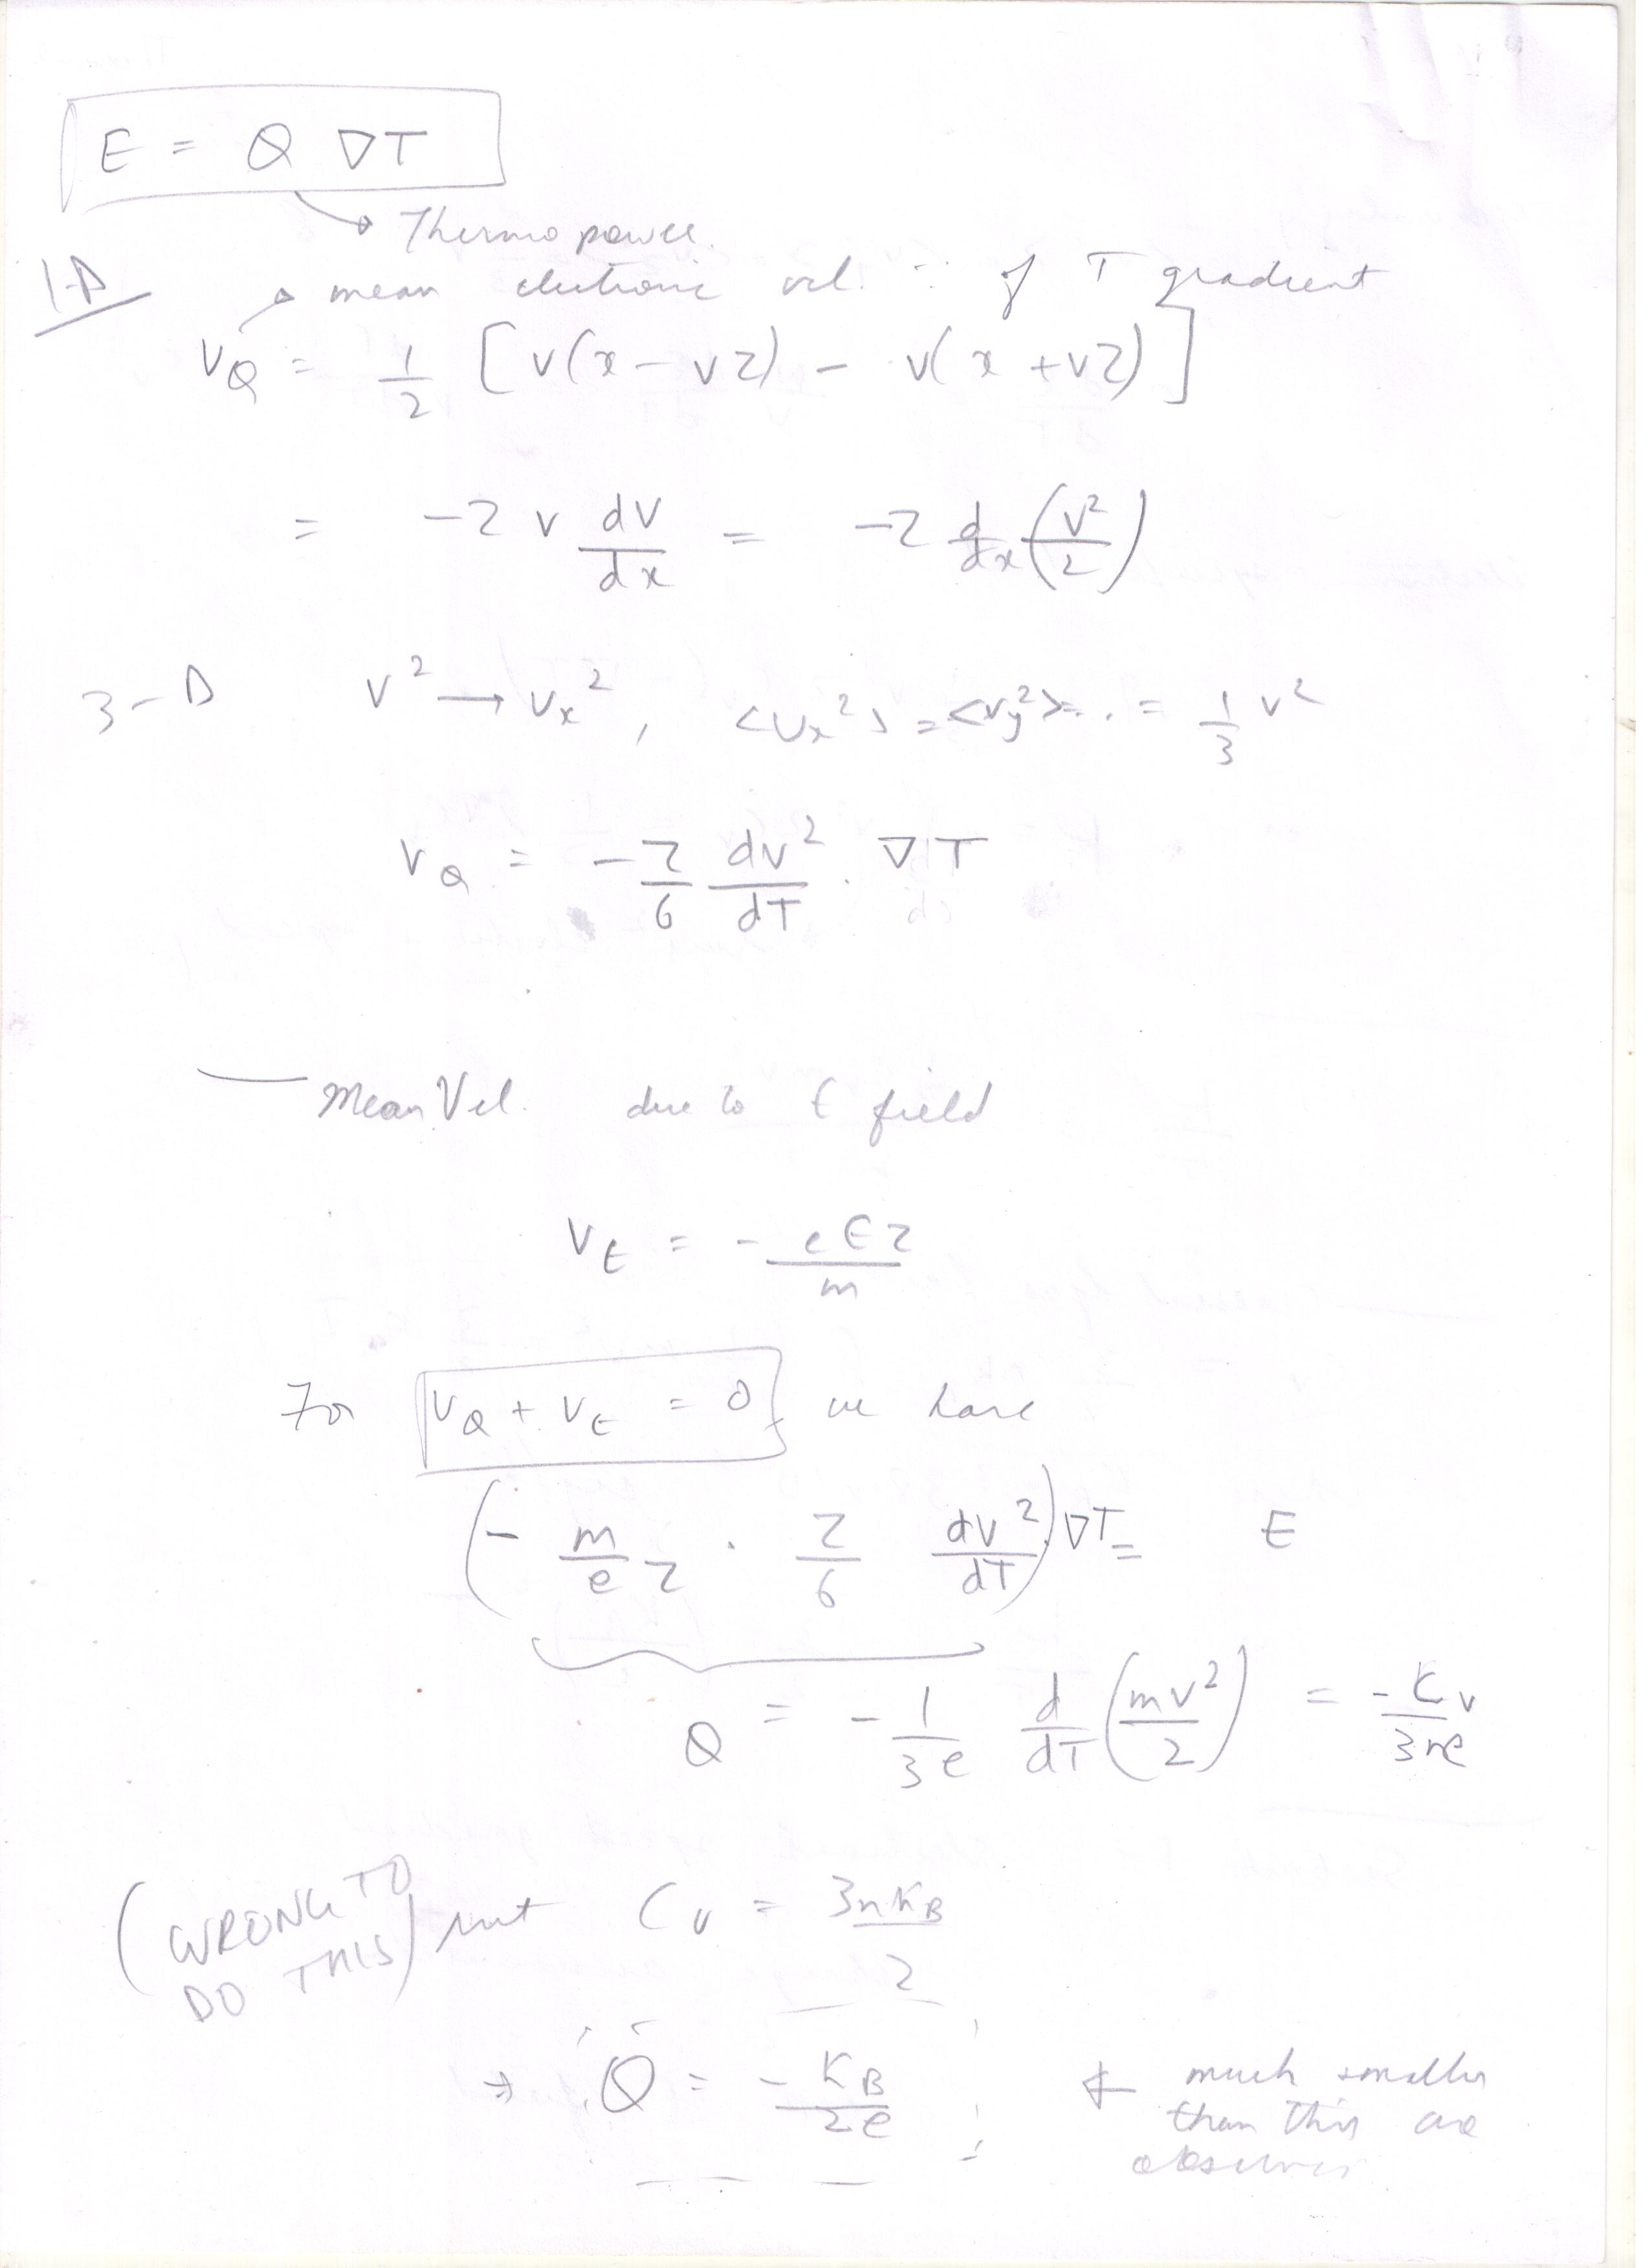 E = Q ∇T
→ Thermopower.
1-D
→ mean electronic vel. ∵ of T gradient
v_Q = 1/2 [v(x − vτ) − v(x + vτ)]
= −τ v dv/dx = −τ d/dx (v²/2)
3-D v² → v_x², <v_x²> = <v_y²> = . = 1/3 v²
v_Q = −τ/6 dv²/dT . ∇T
— Mean Vel. due to E field
v_E = − eEτ/m
For v_Q + v_E = 0 we have
(− m/eτ · τ/6 dv²/dT) ∇T = E
Q = − 1/3e d/dT (mv²/2) = − C_v/3ne
(WRONG TO DO THIS) put C_v = 3nK_B/2
⇒ Q = − K_B/2e
much smaller
than this are
observed